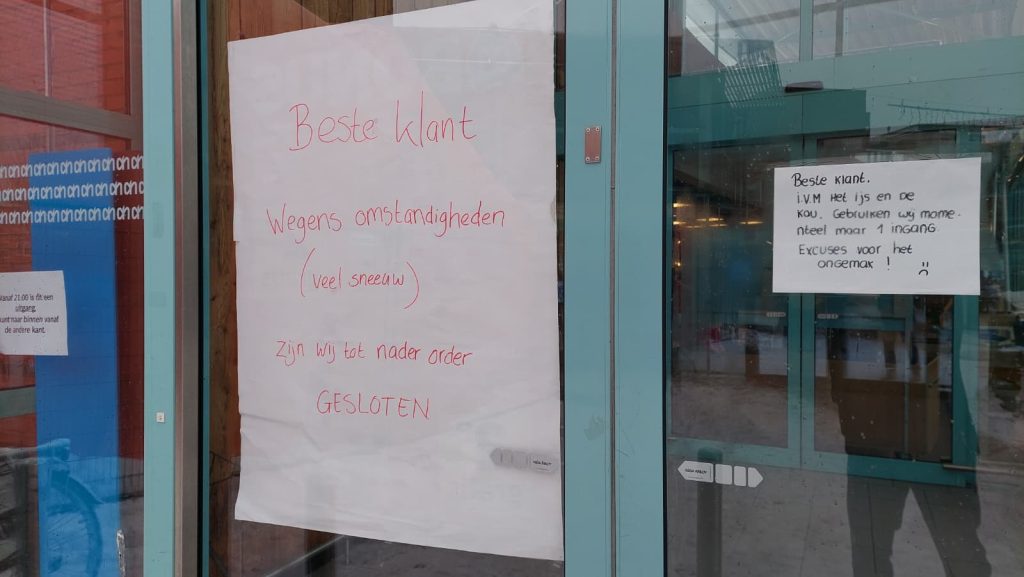 Beste klant
Wegens omstandigheden
(veel sneeuw)
zijn wij tot nader order
GESLOTEN
Beste klant.
i.v.m Het ijs en De
kou. Gebruiken wij mome-
nteel maar 1 ingang.
Excuses voor het
ongemak ! :(
Vanaf 21.00 is dit een
uitgang.
kunt naar binnen vanaf
de andere kant.